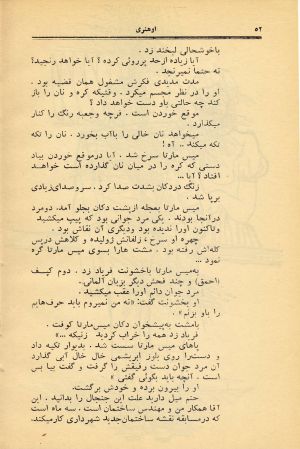 ۵۲
اوهنری
باخوشحالی لبخند زد .
آیا زیاده ازحد پرروئی کرده ؟ آیا خواهد رنجید؟
نه حتماً نمیرنجد .
مدت مدیدی فکرش مشغول همان قضیه بود .
او را در نظر مجسم میکرد . وقتیکه کره و نان را باز
کند چه حالتی باو دست خواهد داد ؟
موقع خوردن است . فرچه وجعبه رنگ را کنار
میگذارد .
میخواهد نان خالی را باآب بخورد . نان را تکه
تکه میکند .. آه !
میس مارتا سرخ شد . آیا درموقع خوردن بیاد
دستی که کره را در میان نان گذارده است خواهد
افتاد ؟ آیا ...
زنگ دردکان بشدت صدا کرد . سروصدای‌زیادی
برپا شد .
میس مارتا بعجله ازپشت دکان بجلو آمد . دومرد
درآنجا بودند . یکی مرد جوانی بود که پیپ میکشید
وتاکنون اورا ندیده بود ودیگری آن نقاش بود .
چهره او سرخ ، زلفانش ژولیده و کلاهش درپس
کله‌اش رفته بود . مشت هارا بسوی میس مارتا گره
نمود .
به‌میس مارتا باخشونت فریاد زد . دوم کیف
(احمق) و چند فحش دیگر بزبان آلمانی .
مرد جوان دائم اورا عقب میکشید .
او بخشونت گفت: «نه من نمیروم باید حرف‌هایم
را باو بزنم» .
بامشت به‌پیشخوان دکان میس‌مارتا کوفت .
فریاد زد همه را خراب کردید زنیکه ...»
پاهای میس مارتا سست شد . بدیوار تکیه داد
و دست‌را روی بلوز ابریشمی خال خال آبی گذارد
آن مرد جوان دست رفیقش را گرفت و گفت بیا بس
است . آنچه باید بگوئی گفتی »
او را بیرون برده و خودش برگشت.
حتم میل دارید علت این جنجال را بدانید . این
آقا همکار من و مهندس ساختمان است . سه ماه است
که درمسابقه نقشه ساختمان‌جدید شهرداری کارمیکند.